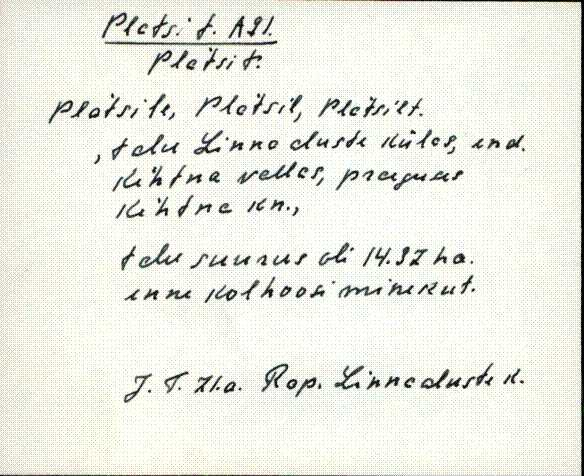 Platsi t. A91.
Pla͔tsi t.
Pla͔tsile, Pla͔tsil, Pla͔tsilt.
, talu Linnaaluste külas, end.
Kehtna vallas, praegus
Kehtna kn.,
talu suurus oli 14.97 ha.
enne kolhoosi minekut.
J. T. Rap. Linnaaluste k.